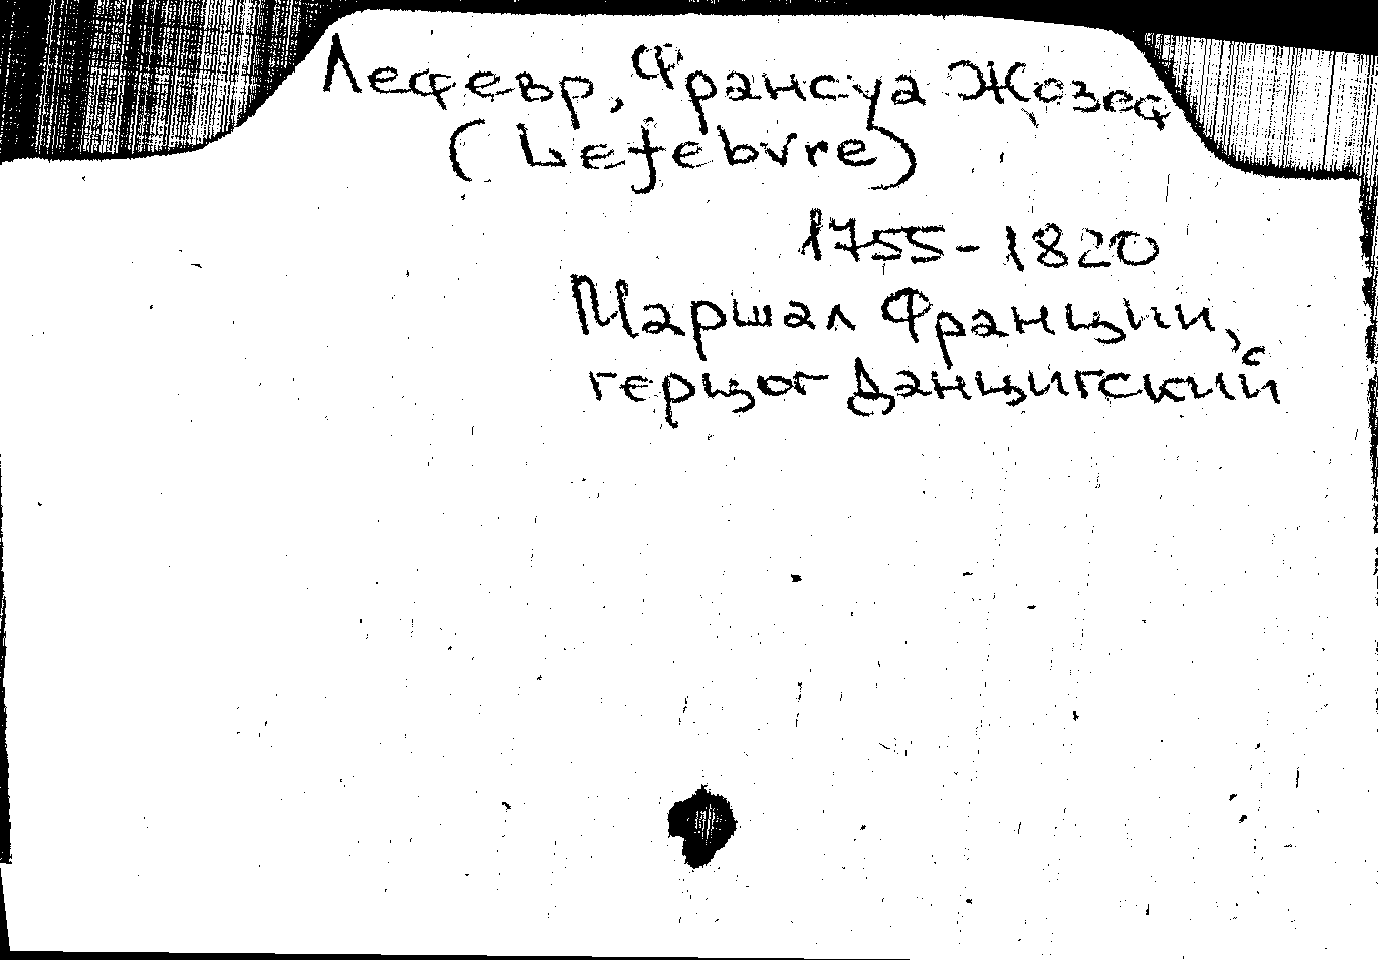 Лефевр, Франсуа Жозеф
(Lefebvre)
1755-1820
Маршал Франции,
герцог Данцигский